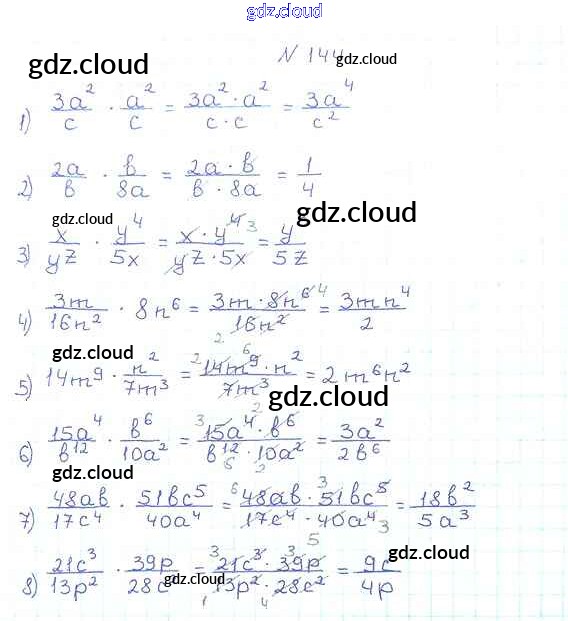 gdz.cloud
N 144
gdz.cloud gdz.cloud
1) 3a²/c · a²/c = 3a²·a²/c·c = 3a⁴/c²
2) 2a/b · b/8a = 2a·b/b·8a = 1/4
gdz.cloud gdz.cloud
3) x/yz · y⁴/5x = x·y⁴ ³/yz·5x = y/5z
4) 3m/16n² · 8n⁶ = 3m·8n⁶ ⁴/₂16n² = 3mn⁴/2
gdz.cloud
5) 14m⁹ · n²/7m³ = ²14m⁹ ⁶·n²/7m³ = 2m⁶n²
gdz.cloud
6) 15a⁴/b¹² · b⁶/10a² = ³15a⁴ ²·b⁶/b¹² ₆·10a² ₂ = 3a²/2b⁶
gdz.cloud gdz.cloud
7) 48ab/17c⁴ · 51bc⁵/40a⁴ = ⁶48ab·³51bc⁵/17c⁴·40a⁴ ₃ ₅ = 18b²/5a³
8) 21c³/13p² · 39p/28c² = ³21c³·³39p/13p² ₁·28c² ₄ = 9c/4p
gdz.cloud gdz.cloud